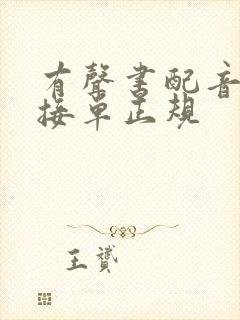 有聲書配音
接單正規
王贇